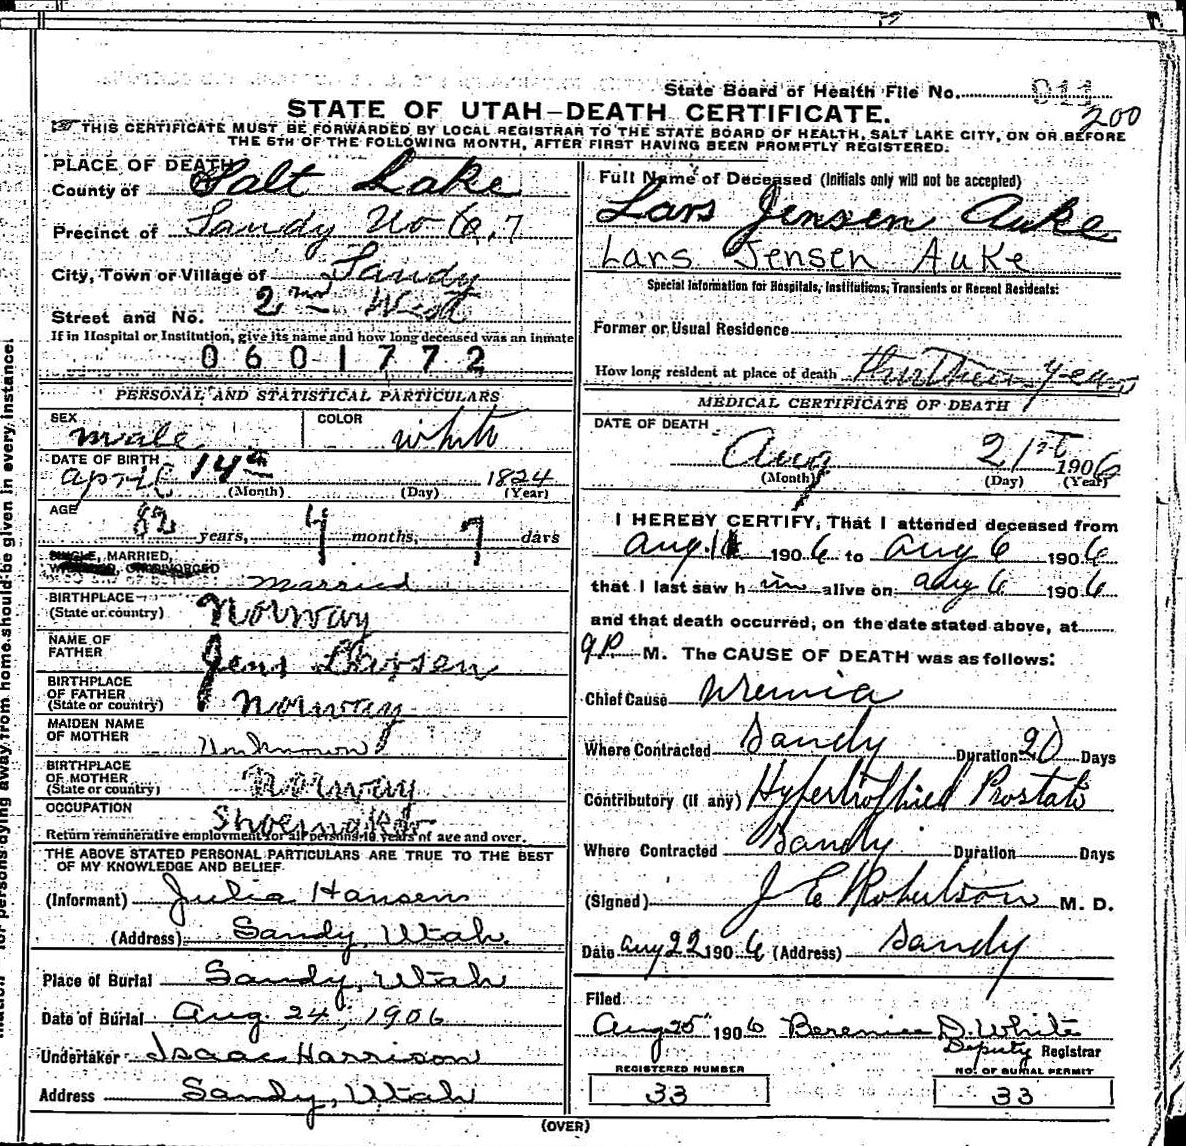 State Board of Health File No. 011
200
STATE OF UTAH-DEATH CERTIFICATE.
THIS CERTIFICATE MUST BE FORWARDED BY LOCAL REGISTRAR TO THE STATE BOARD OF HEALTH, SALT LAKE CITY, ON OR BEFORE
THE 5TH OF THE FOLLOWING MONTH, AFTER FIRST HAVING BEEN PROMPTLY REGISTERED.
PLACE OF DEATH
County of Salt Lake
Precinct of Sandy No 7
City, Town or Village of Sandy
Street and No. 2nd West
If in Hospital or Institution, give its name and how long deceased was an inmate
0601772
PERSONAL AND STATISTICAL PARTICULARS
SEX male COLOR white
DATE OF BIRTH
april 14th 1824
(Month) (Day) (Year)
AGE
82 years, 4 months, 7 days
SINGLE, MARRIED,
WIDOWED, OR DIVORCED married
BIRTHPLACE
(State or country) Norway
NAME OF
FATHER Jens Larsen
BIRTHPLACE
OF FATHER
(State or country) Norway
MAIDEN NAME
OF MOTHER Unknown
BIRTHPLACE
OF MOTHER
(State or country) Norway
OCCUPATION Shoemaker
Return remunerative employment for all persons 10 years of age and over.
THE ABOVE STATED PERSONAL PARTICULARS ARE TRUE TO THE BEST
OF MY KNOWLEDGE AND BELIEF
(Informant) Julia Hansen
(Address) Sandy, Utah.
Place of Burial Sandy, Utah
Date of Burial Aug. 24, 1906
Undertaker Isaac Harrison
Address Sandy, Utah
Full Name of Deceased (Initials only will not be accepted)
Lars Jensen Auke
Lars Jensen Auke
Special Information for Hospitals, Institutions, Transients or Recent Residents:
Former or Usual Residence
How long resident at place of death years
MEDICAL CERTIFICATE OF DEATH
DATE OF DEATH
Aug 21st 1906
(Month) (Day) (Year)
I HEREBY CERTIFY, That I attended deceased from
Aug. 1 1906 to Aug 6 1906
that I last saw him alive on Aug 6 1906
and that death occurred, on the date stated above, at
9 P. M. The CAUSE OF DEATH was as follows:
Chief Cause Uremia
Where Contracted Sandy Duration 20 Days
Contributory (if any) Hypertrophied Prostate
Where Contracted Sandy Duration Days
(Signed) J E Robertson M. D.
Date Aug 22 1906 (Address) Sandy
Filed
Aug 25" 1906 Berenice D. White
Deputy Registrar
REGISTERED NUMBER
33
NO. OF BURIAL PERMIT
33
(OVER)
for persons dying away from home should be given in every instance.